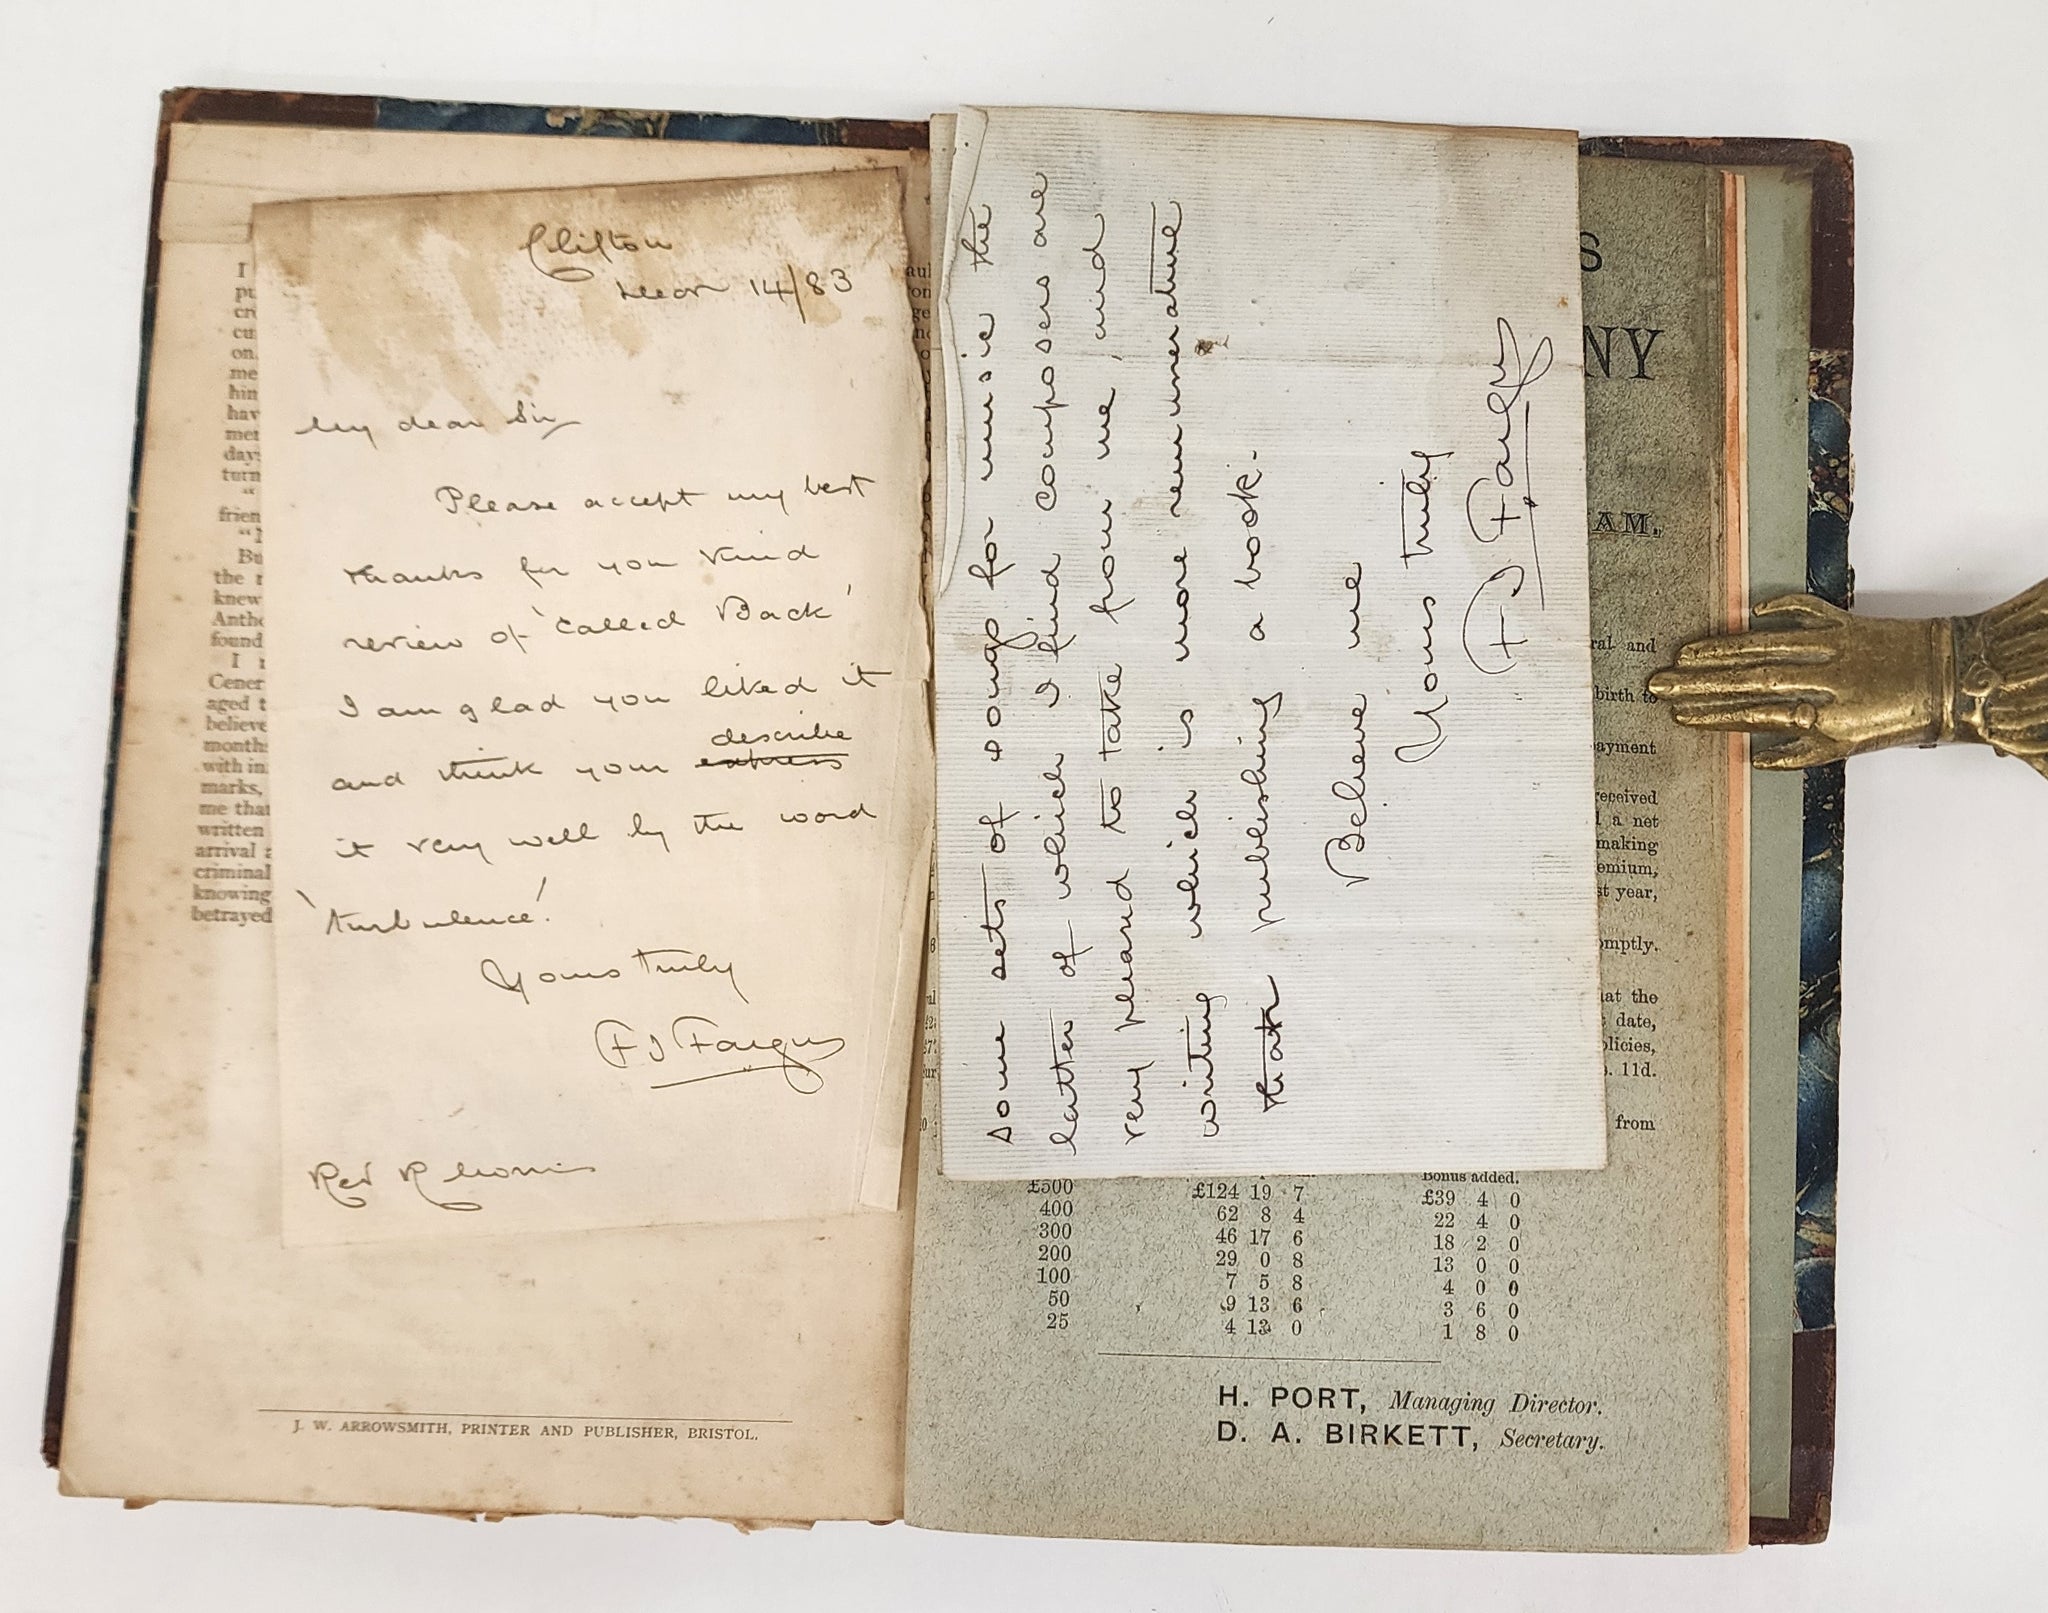 Clifton
Decr 14/83
My dear Sir
Please accept my best
thanks for your kind
review of 'Called Back'
I am glad you liked it
describe
and think you express
it very well by the word
'turbulence'.
Yours truly
F J Fargus
Rev R
some sets of songs for music the
latter of which I find composers are
very pleased to take from me, and
writing which is more remunerative
than publishing a book.
Believe me
Yours truly
F. J. Fargus
I
pu
cre
cu
on.
me
him
hav
mer
day
turn
"
frien
Bu
the
knew
Anth
found
I
Cener
aged t
believe
month
with in
marks,
me that
written
arrival
criminal
knowing
betrayed
J. W. ARROWSMITH, PRINTER AND PUBLISHER, BRISTOL.
S
NY
AM.
ral and
birth to
payment
received
a net
making
emium,
st year,
omptly.
at the
date,
olicies,
11d.
from
Bonus added.
£500 £124 19 7 £39 4 0
400 62 8 4 22 4 0
300 46 17 6 18 2 0
200 29 0 8 13 0 0
100 7 5 8 4 0 0
50 9 13 6 3 6 0
25 4 13 0 1 8 0
H. PORT, Managing Director.
D. A. BIRKETT, Secretary.